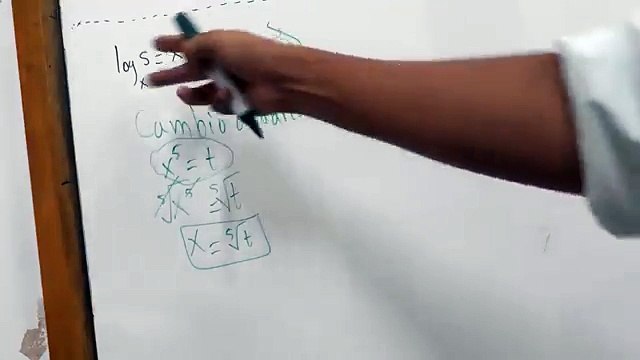 log_x 5 = x
Cambio
x⁵ = t
⁵√x⁵ = ⁵√t
x = ⁵√t